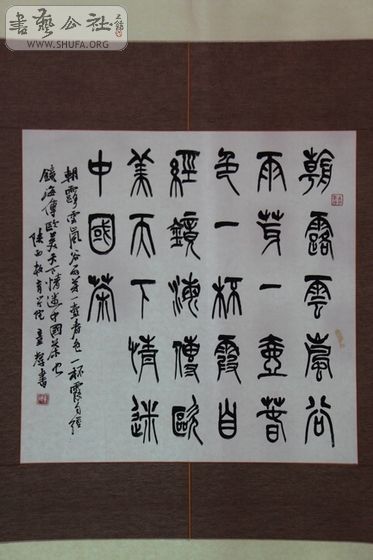 書藝公社
WWW.SHUFA.ORG
朝露雲嵐谷
雨芽一壺春
色一杯霞自
經鏡海傳歐
美天下情迷
中國茶
朝露雲嵐谷雨芽一壺春色一杯霞自經
鏡海傳歐美天下情迷中國茶
陝西教育學院 書